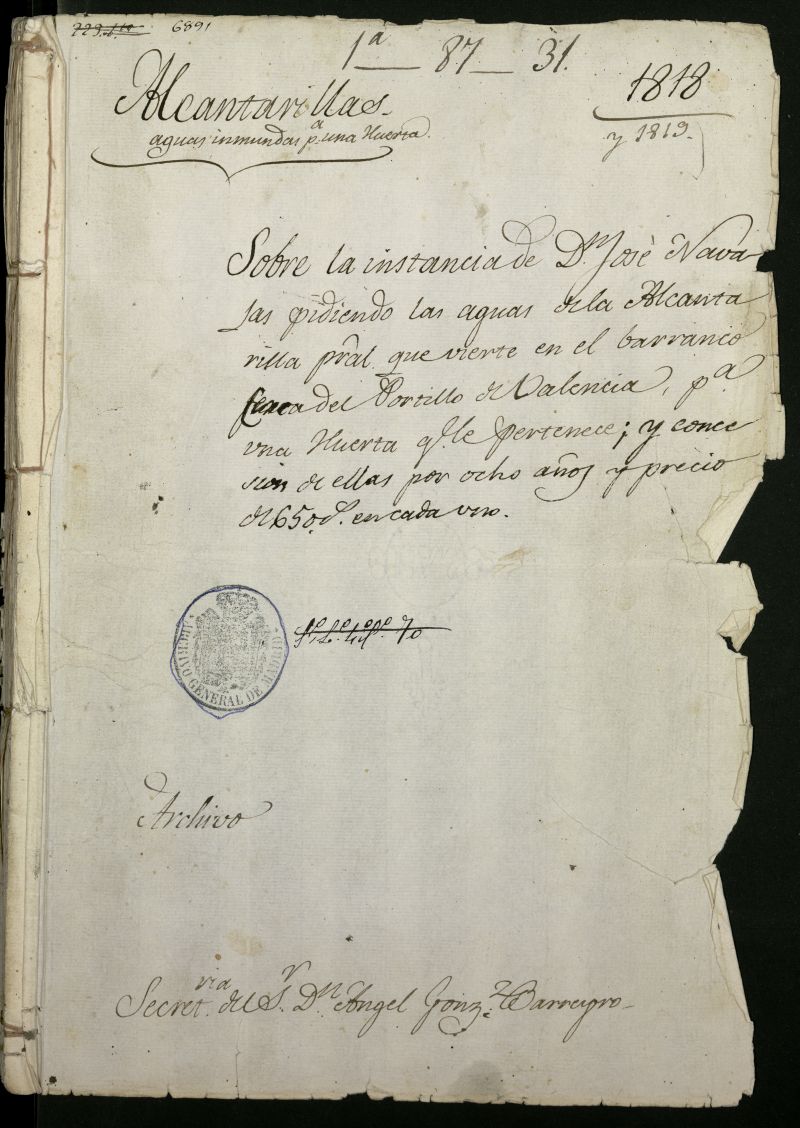 6891
1ª 87 31.
Alcantarillas.
aguas inmundas pª una Huerta.
1818
y 1819.
Sobre la instancia de Dn José Nava
jas pidiendo las aguas de la Alcanta
rilla pral que vierte en el barranco
cerca del Portillo de Valencia, pª
una Huerta qe le pertenece; y conce
sion de ellas por ocho años y precio
de 650 en cada uno.
ARCHIVO GENERAL DE MADRID
Archivo
Secretria del Sr Dn Angel Gonzz Barreyro